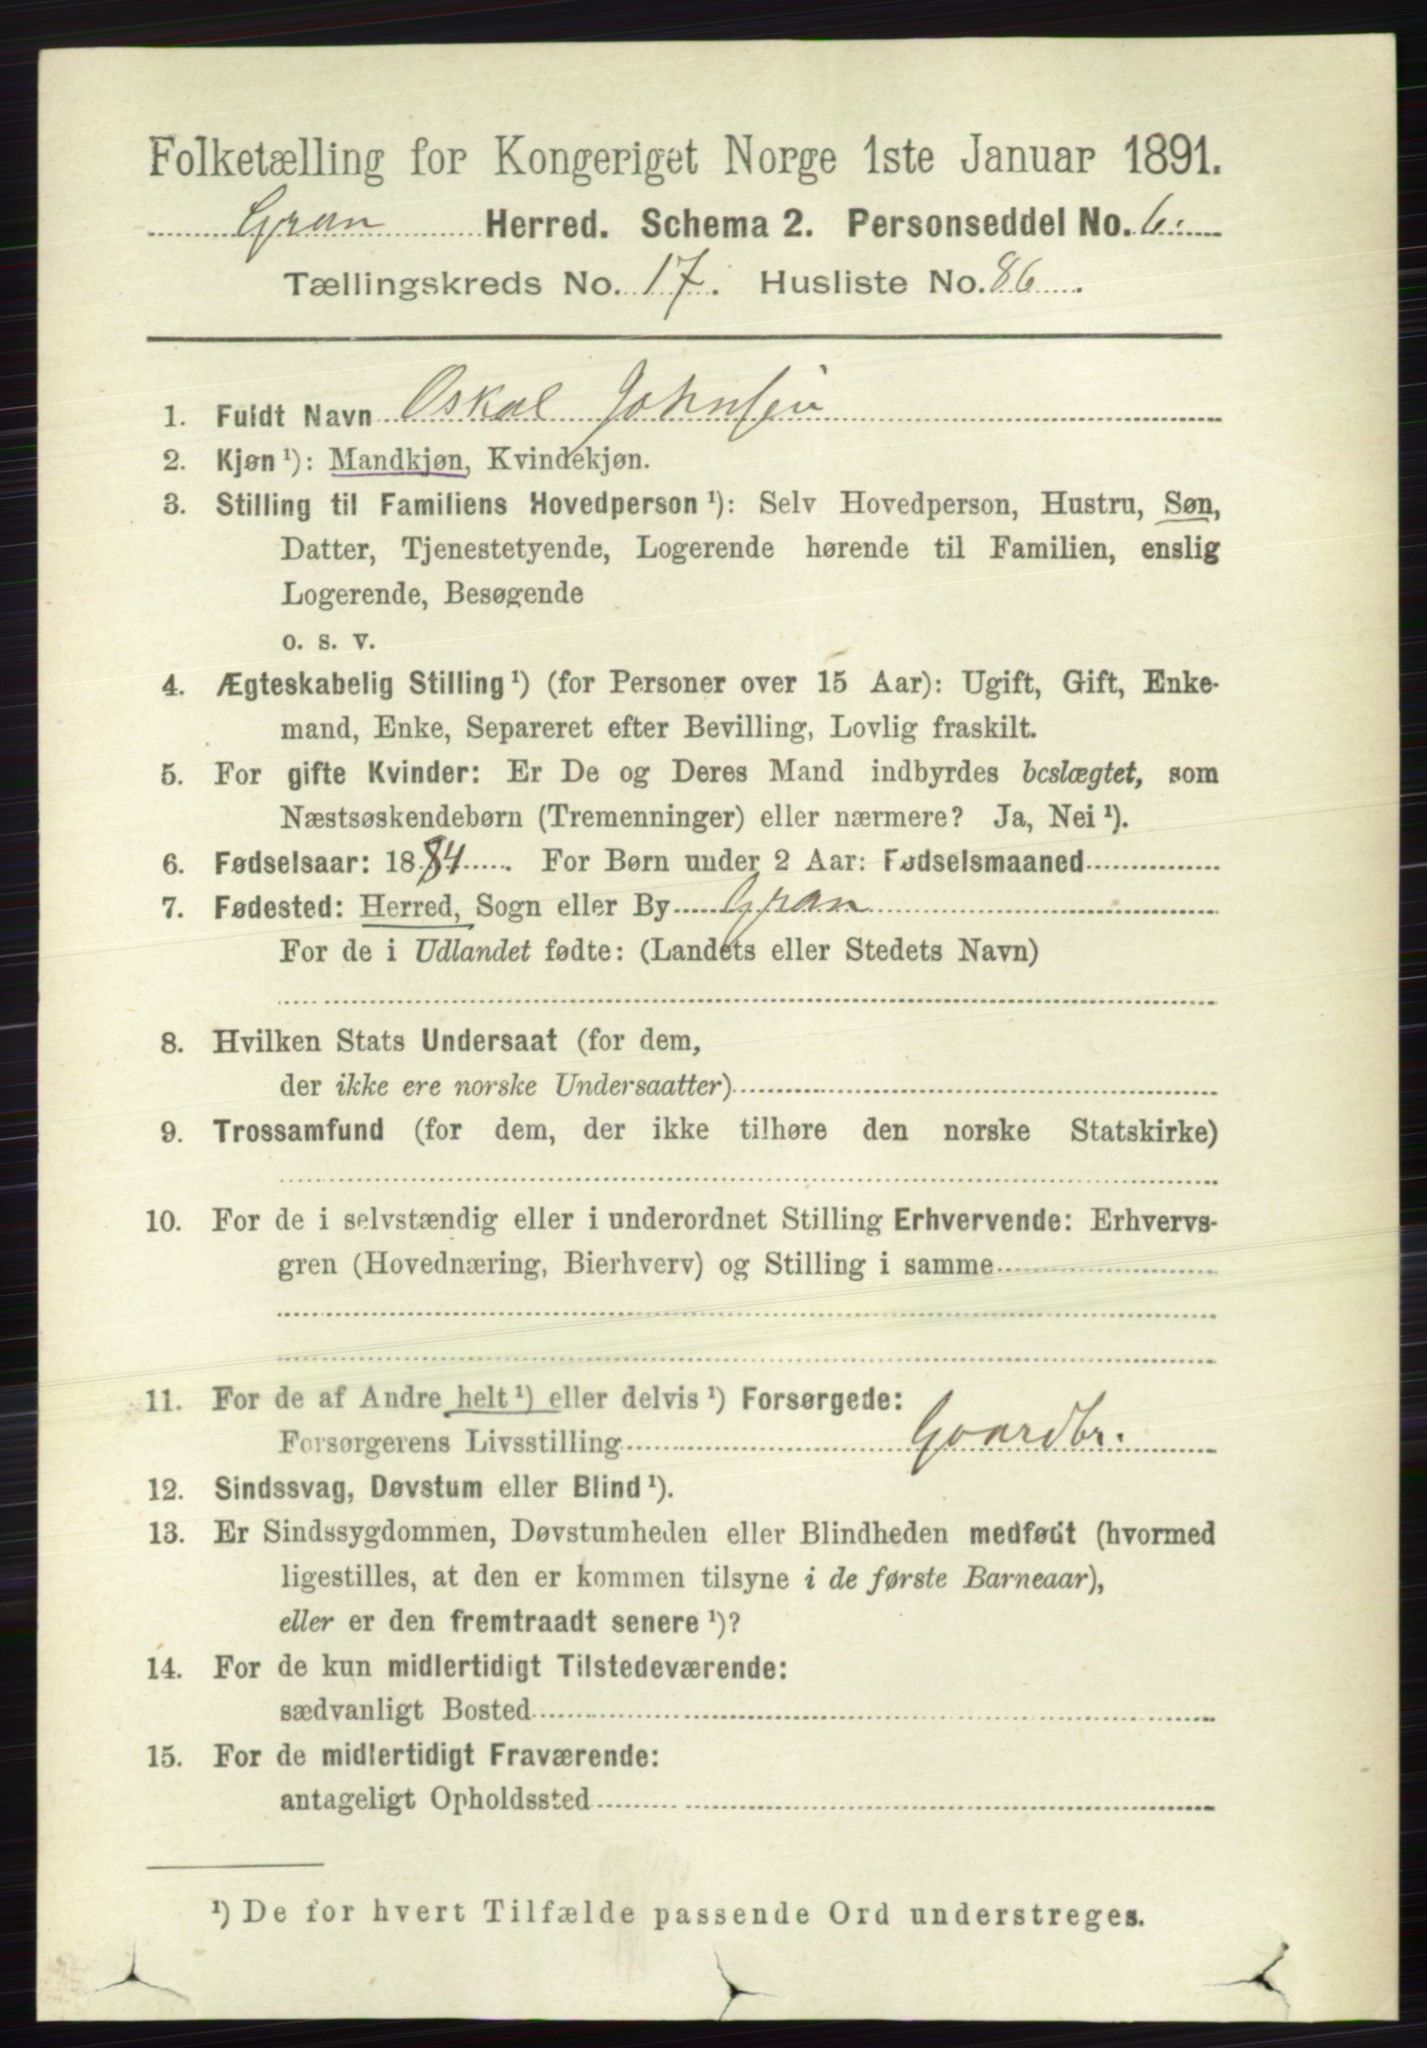 Folketælling for Kongeriget Norge 1ste Januar 1891.
Gran Herred. Schema 2. Personseddel No. 6.
Tællingskreds No. 17. Husliste No. 86.
1. Fuldt Navn Oskal Johnsen
2. Kjøn ¹): Mandkjøn, Kvindekjøn.
3. Stilling til Familiens Hovedperson ¹): Selv Hovedperson, Hustru, Søn,
Datter, Tjenestetyende, Logerende hørende til Familien, enslig
Logerende, Besøgende
o. s. v.
4. Ægteskabelig Stilling ¹) (for Personer over 15 Aar): Ugift, Gift, Enke-
mand, Enke, Separeret efter Bevilling, Lovlig fraskilt.
5. For gifte Kvinder: Er De og Deres Mand indbyrdes beslægtet, som
Næstsøskendebørn (Tremenninger) eller nærmere? Ja, Nei ¹).
6. Fødselsaar: 1884. For Børn under 2 Aar: Fødselsmaaned
7. Fødested: Herred, Sogn eller By Gran
For de i Udlandet fødte: (Landets eller Stedets Navn)
8. Hvilken Stats Undersaat (for dem,
der ikke ere norske Undersaatter)
9. Trossamfund (for dem, der ikke tilhøre den norske Statskirke)
10. For de i selvstændig eller i underordnet Stilling Erhvervende: Erhvervs-
gren (Hovednæring, Bierhverv) og Stilling i samme
11. For de af Andre helt ¹) eller delvis ¹) Forsørgede:
Forsørgerens Livsstilling Gaardbr.
12. Sindssvag, Døvstum eller Blind ¹).
13. Er Sindssygdommen, Døvstumheden eller Blindheden medfødt (hvormed
ligestilles, at den er kommen tilsyne i de første Barneaar),
eller er den fremtraadt senere ¹)?
14. For de kun midlertidigt Tilstedeværende:
sædvanligt Bosted
15. For de midlertidigt Fraværende:
antageligt Opholdssted
¹) De for hvert Tilfælde passende Ord understreges.